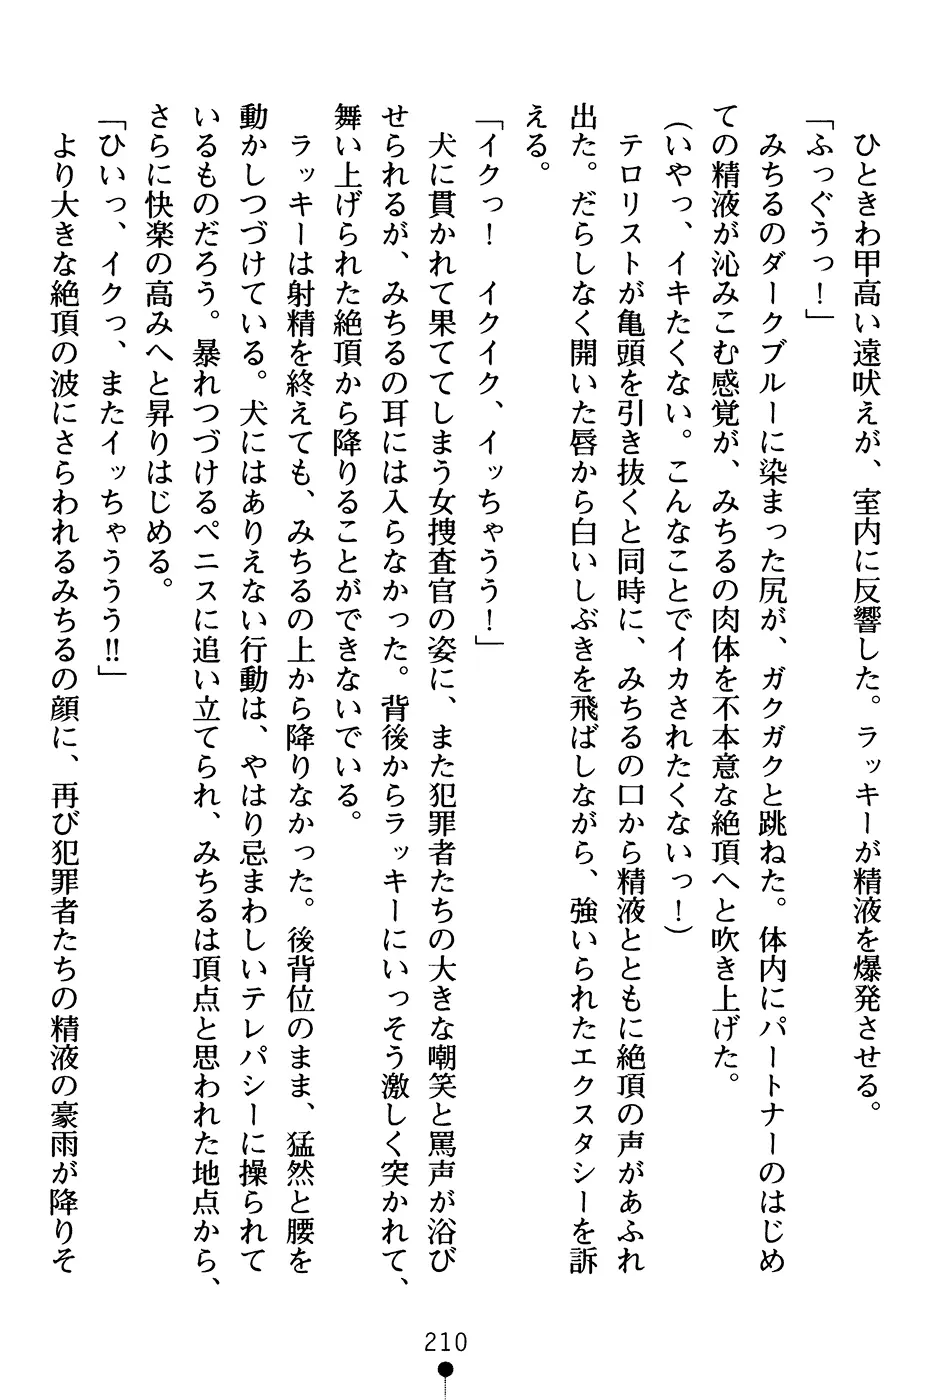 ひときわ甲高い遠吠えが、室内に反響した。ラッキーが精液を爆発させる。
「ふっぐうっ！」
みちるのダークブルーに染まった尻が、ガクガクと跳ねた。体内にパートナーのはじめ
ての精液が沁みこむ感覚が、みちるの肉体を不本意な絶頂へと吹き上げた。
（いやっ、イキたくない。こんなことでイカされたくないっ！）
テロリストが亀頭を引き抜くと同時に、みちるの口から精液とともに絶頂の声があふれ
出た。だらしなく開いた唇から白いしぶきを飛ばしながら、強いられたエクスタシーを訴
える。
「イクっ！　イクイク、イッちゃうう！」
犬に貫かれて果ててしまう女捜査官の姿に、また犯罪者たちの大きな嘲笑と罵声が浴び
せられるが、みちるの耳には入らなかった。背後からラッキーにいっそう激しく突かれて、
舞い上げられた絶頂から降りることができないでいる。
ラッキーは射精を終えても、みちるの上から降りなかった。後背位のまま、猛然と腰を
動かしつづけている。犬にはありえない行動は、やはり忌まわしいテレパシーに操られて
いるものだろう。暴れつづけるペニスに追い立てられ、みちるは頂点と思われた地点から、
さらに快楽の高みへと昇りはじめる。
「ひいっ、イクっ、またイッちゃううう‼」
より大きな絶頂の波にさらわれるみちるの顔に、再び犯罪者たちの精液の豪雨が降りそ
210